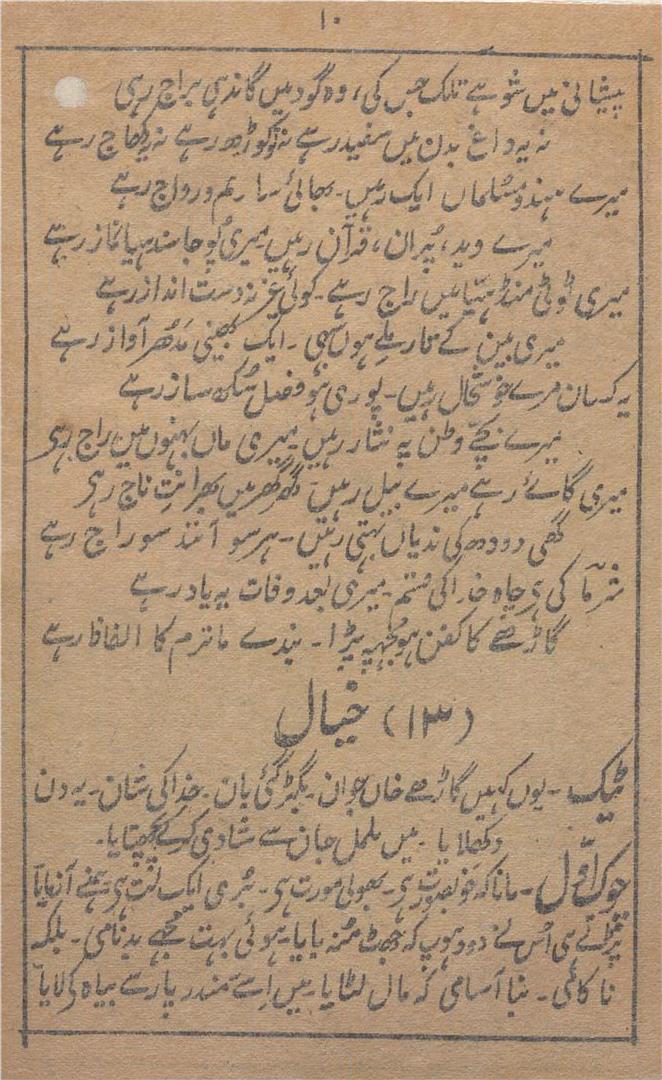 ۱۰
پیشانی میں شوہے تلک جس کی، وہ گود میں گاندھی براج رہی
نہ یہ داغ بدن میں سفید رہے نہ کوڑھ رہے نہ کھاج رہے
میرے ہندو مسلماں ایک رہیں۔ بھائی سا رسم و رواج رہے
میرے وید، پران، قرآن رہیں میری پوجا سندھیا نماز رہے
میری ٹوٹی منڈھیا میں راج رہے۔ کوئی غیر نہ دست انداز رہے
میری بین کے تار ملے ہوں سبھی۔ ایک بھینی مدھر آواز رہے
یہ کسان مرے خوشحال رہیں۔ پوری ہو فصل سکھ ساز رہے
میرے بچے وطن پہ نثار رہیں۔ میری ماں بہنوں میں راج رہی
میری گائے رہے میرے بیل رہیں گھر گھر میں بھرا نت ناج رہی
گھی دودھ کی ندیاں بہتی رہیں۔ ہر سو آنند سوراج رہے
شرما کی ہے چاہ خدا کی قسم۔ میری بعد وفات یہ یاد رہے
گاڑھے کا کفن ہو مجھ پہ پڑا۔ بندے ماترم کا الفاظ رہے
(۱۳) خیال
ٹیک۔ یوں کہیں گاڑھے خاں جوان۔ بگڑ گئی بان۔ خدا کی شان۔ یہ دن
دکھلایا۔ میں ململ جان سے شادی کر کے پچھتایا۔
چوک اول۔ مانا کہ خوبصورت ہی۔ بھولی مورت ہی۔ بُری ایک لت ہی ہمنے آزمایا
پڑتے ہی اُس نے دھوپ کہ جھٹ مُنہ بایا۔ ہوئی بہت مجھے بدنامی۔ بلکہ
ناکامی۔ بنا آسامی کہ مال لٹایا۔ میں اِسے سمندر پار سے بیاہ کر لایا